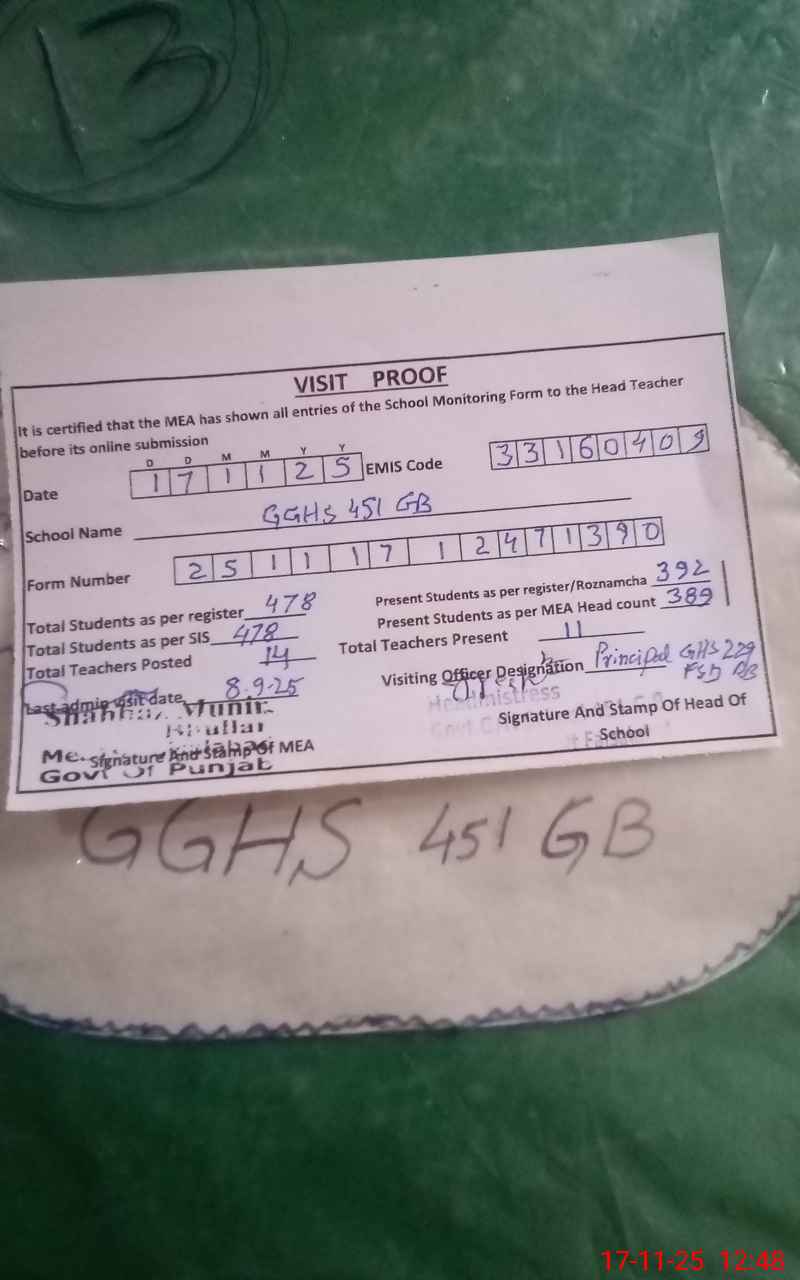 13
VISIT PROOF
It is certified that the MEA has shown all entries of the School Monitoring Form to the Head Teacher
before its online submission
D D M M Y Y
Date 1 7 1 1 2 5 EMIS Code 3 3 1 6 0 4 0 9
School Name GGHS 451 GB
Form Number 2 5 1 1 1 7 1 2 4 7 1 3 9 0
Total Students as per register 478 Present Students as per register/Roznamcha 392
Total Students as per SIS 478 Present Students as per MEA Head count 389
Total Teachers Posted 14 Total Teachers Present 11
Last admin visit date 8.9.25 Visiting Officer Designation Principal GHS 229
FSD RB
Shahbaz Munir Headmistress
Bhullar Signature And Stamp Of Head Of
Signature And Stamp Of MEA School
Govt Of Punjab
GGHS 451 GB
17-11-25 12:48